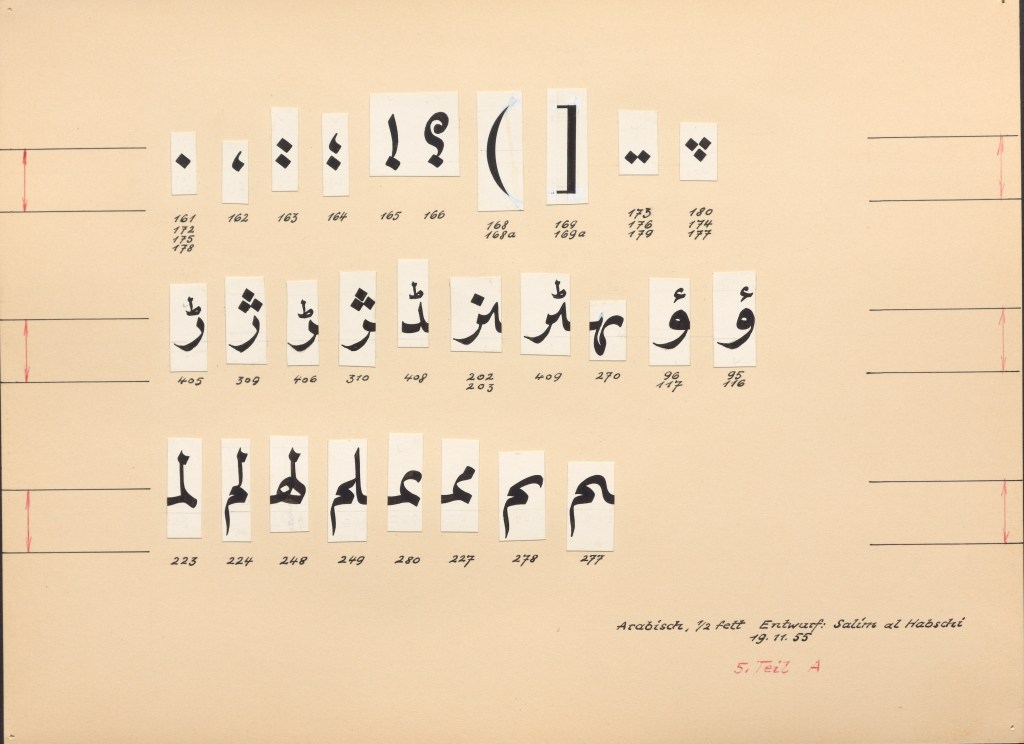 . ، : ؛ ! ؟ ( ]
161 162 163 164 165 166 168 169 173 180
172 168a 169a 176 174
175 179 177
178
ڑ ژ ڑ ژ ڈ ؤ ؤ
405 309 406 310 408 202 409 270 96 95
203 117 116
223 224 248 249 280 227 278 277
Arabisch, 1/2 fett Entwurf: Salim al Habschi
19.11.55
5. Teil A